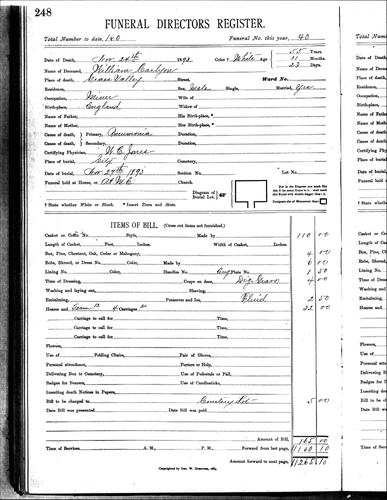 248
FUNERAL DIRECTORS REGISTER.
Total Number to date, 160 Funeral No. this year, 40
Date of Death, Nov 24th 1893 Color † White Age 55 Years
11 Months
23 Days
Name of Deceased, William
Place of death, Grass Valley Street, Ward No.
Residence, Sex, Male Single, Married, Yes
Occupation, Miner Wife of
Birthplace, England Widow of
Name of Father, His Birth-place, *
Name of Mother, Her Birth-place, *
Cause of death, Primary, Pneumonia Duration,
Cause of death, Secondary, Duration,
Certifying Physician, W. C. Jones Residence,
Place of burial, City Cemetery,
Date of burial, Nov 27th 1893 Section No. Lot No.
Funeral held at Home, or at M. E. Church.
Diagram of Burial Lot
† State whether White or Black. * Insert Town and State.
ITEMS OF BILL. (Cross out items not furnished.)
Casket or Coffin No. Style, Made by 110 00
Length of Casket, Feet, Inches. Width of Casket, Inches.
Box, Pine, Chestnut, Oak, Cedar or Mahogany, 4 00
Robe, Shroud, or Dress No. Color, Made by 6 00
Lining No. Color, Handles No. Eng Plate No. 1 50
Time of Dressing, Crape on door, Dig Grave 4 00
Washing and laying out, Shaving,
Embalming, Preserver and Ice, Fluid 2 50
Hearse and Team 12 4 Carriages 20 32 00
Carriage to call for Time,
Carriage to call for Time,
Carriage to call for Time,
Carriage to call for Time,
Flowers,
Use of Folding Chairs, Pair of Gloves,
Personal attendance, Porters or Help,
Delivering Box to Cemetery, Use of Pedestals or Pall,
Badges for Bearers, Use of Candlesticks,
Inserting death Notices in Papers,
Bill to be charged to Cemetery Lot 5 00
Date Bill was presented Date Bill was paid
Amount of Bill, 165 00
Time of Services, A. M., P. M. Forward from last page,
Amount forward to next page, 10